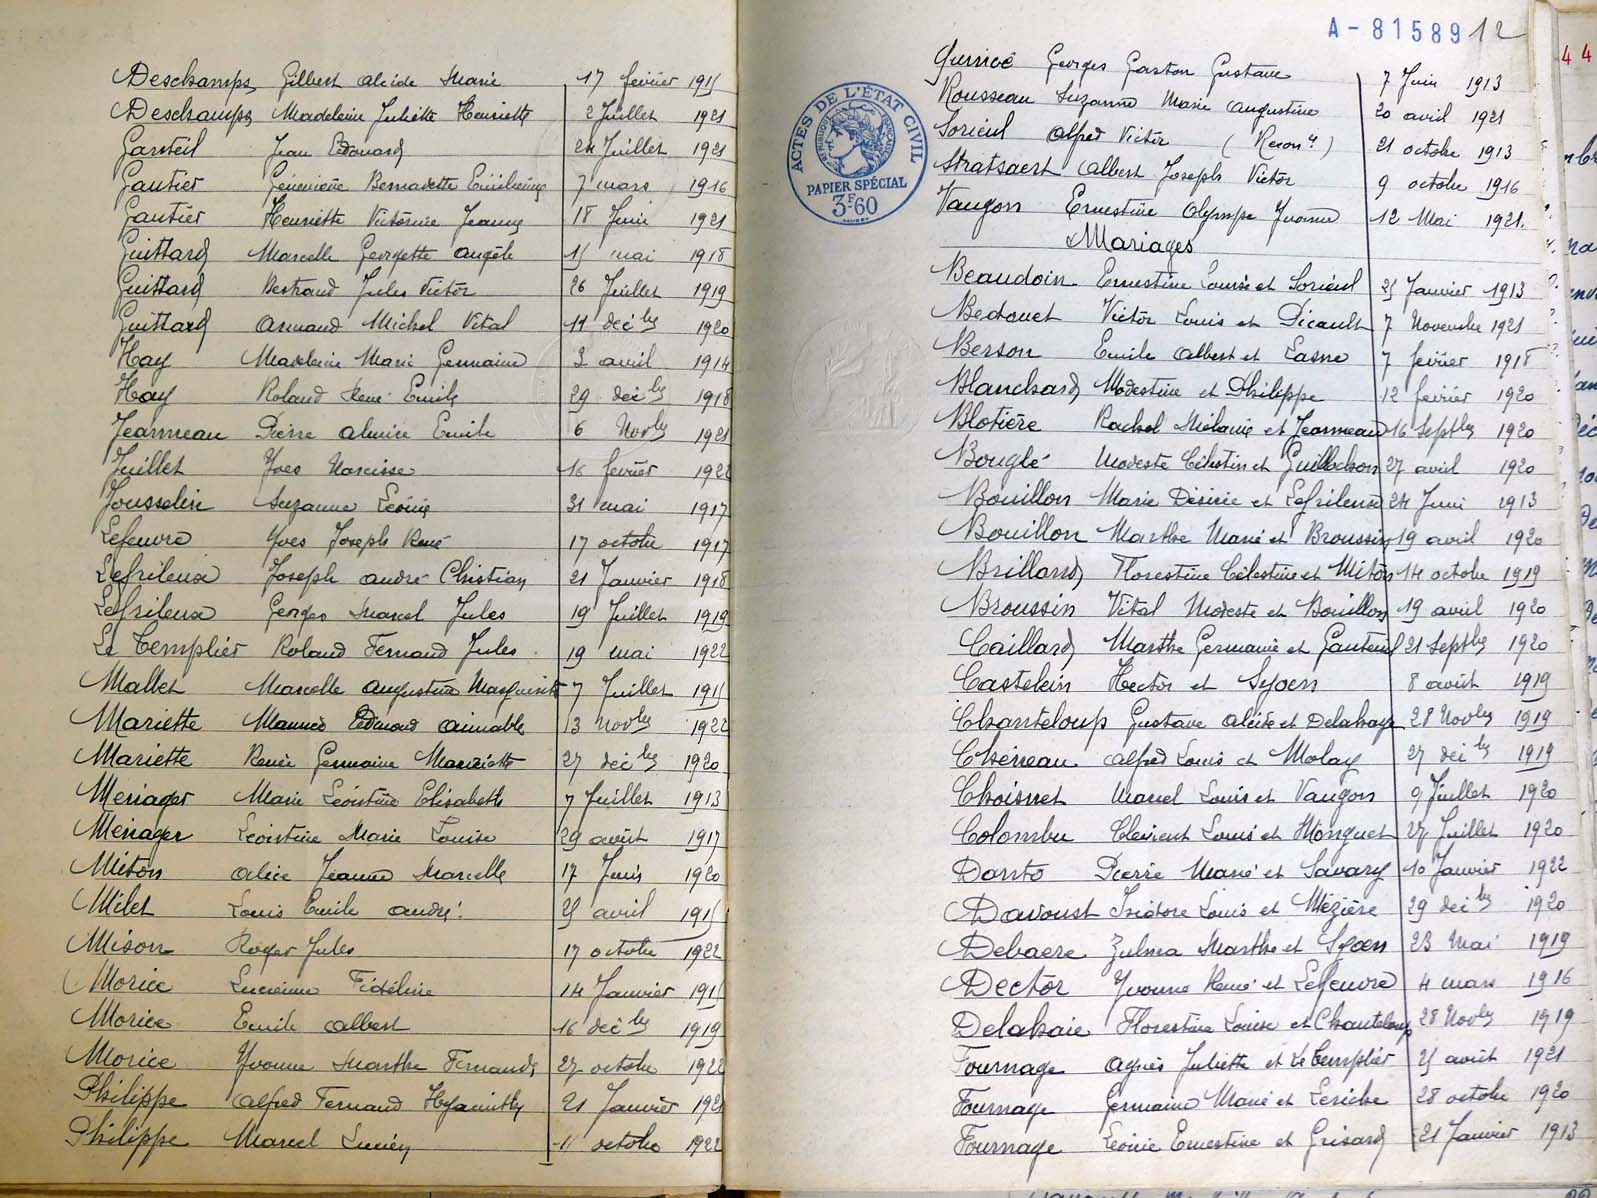 Deschamps Gilbert Alcide Marie 17 février 1915
Deschamps Madeleine Juliette Henriette 2 Juillet 1921
Garteil Jean Edouard 24 Juillet 1921
Gautier Geneviève Bernadette Emilienne 7 mars 1916
Gautier Henriette Victorine Jeanne 18 Juin 1921
Guittard Marcelle Georgette Angèle 15 mai 1918
Guittard Bertrand Jules Victor 26 Juillet 1919
Guittard Armand Michel Vital 11 décbre 1920
Hay Madeleine Marie Germaine 3 avril 1914
Hay Roland René Emile 29 décbre 1918
Jeanneau Pierre Almire Emile 6 Novbre 1921
Juillet Yves Narcisse 16 février 1922
Jousselin Suzanne Léonie 31 mai 1917
Lefeuvre Yves Joseph René 17 octobre 1917
Lefrileux Joseph André Christian 21 Janvier 1918
Lefrileux Georges Marcel Jules 19 Juillet 1919
Le Templier Roland Fernand Jules 19 mai 1922
Mallet Marcelle Augustine Marguerite 7 Juillet 1915
Mariette Maurice Edmond Aimable 3 Novbre 1922
Mariette Renée Germaine Henriette 27 décbre 1920
Menager Marie Léontine Elisabeth 7 Juillet 1913
Menager Léontine Marie Louise 29 août 1917
Miton Alice Jeanne Marcelle 17 Juin 1920
Milet Louis Emile André 25 avril 1915
Mison Roger Jules 17 octobre 1922
Morice Lucienne Fidéline 14 Janvier 1915
Morice Emile Albert 16 décbre 1919
Morice Yvonne Marthe Fernande 27 octobre 1922
Philippe Alfred Fernand Hyacinthe 21 Janvier 1921
Philippe Marcel Lucien 11 octobre 1922
A-81589 12
ACTES DE L'ÉTAT CIVIL
PAPIER SPÉCIAL
3F60
Georges Gaston Gustave 7 Juin 1913
Rousseau Suzanne Marie Augustine 20 avril 1921
Sorieul Alfred Victor (Recon.) 21 octobre 1913
Stratsaert Albert Joseph Victor 9 octobre 1916
Vaugon Ernestine Olympe Yvonne 12 Mai 1921.
Mariages
Beaudoin Ernestine Louise et Sorieul 25 Janvier 1913
Bedouet Victor Louis et Picault 7 Novembre 1921
Berson Emile Albert et Lasne 7 février 1918
Blanchard Modestine et Philippe 12 février 1920
Blotière Rachel Mélanie et Jeanneau 16 Septbre 1920
Bouglé Modeste Célestin et 27 avril 1920
Bouillon Marie Désirée et Lefrileux 24 Juin 1913
Bouillon Marthe Marie et Broussin 19 avril 1920
Brilland Florestine Célestine et Miton 14 octobre 1919
Broussin Vital Modeste et Bouillon 19 avril 1920
Caillard Marthe Germaine et Ganteuil 21 Septbre 1920
Castelein Hector et Syoen 8 août 1919
Chanteloup Gustave Alcide et Delahaye 28 Novbre 1919
Chéneau Alfred Louis et Molay 27 décbre 1919
Choisnet Marcel Louis et Vaugon 9 Juillet 1920
Colombu Clément Louis et Monguet 27 Juillet 1920
Danto Pierre Marie et Savary 10 Janvier 1922
Davoust Isidore Louis et Mézière 29 décbre 1920
Debaere Zulma Marthe et Syoen 23 Mai 1919
Dector Yvonne René et Lefeuvre 4 mars 1916
Delahaie Florestine Louise et Chanteloup 28 Novbre 1919
Fournage Agnès Juliette et Le Templier 25 août 1921
Fournage Germaine Marie et Leriche 28 octobre 1920
Fournage Léonie Ernestine et Grisard 21 Janvier 1913
44